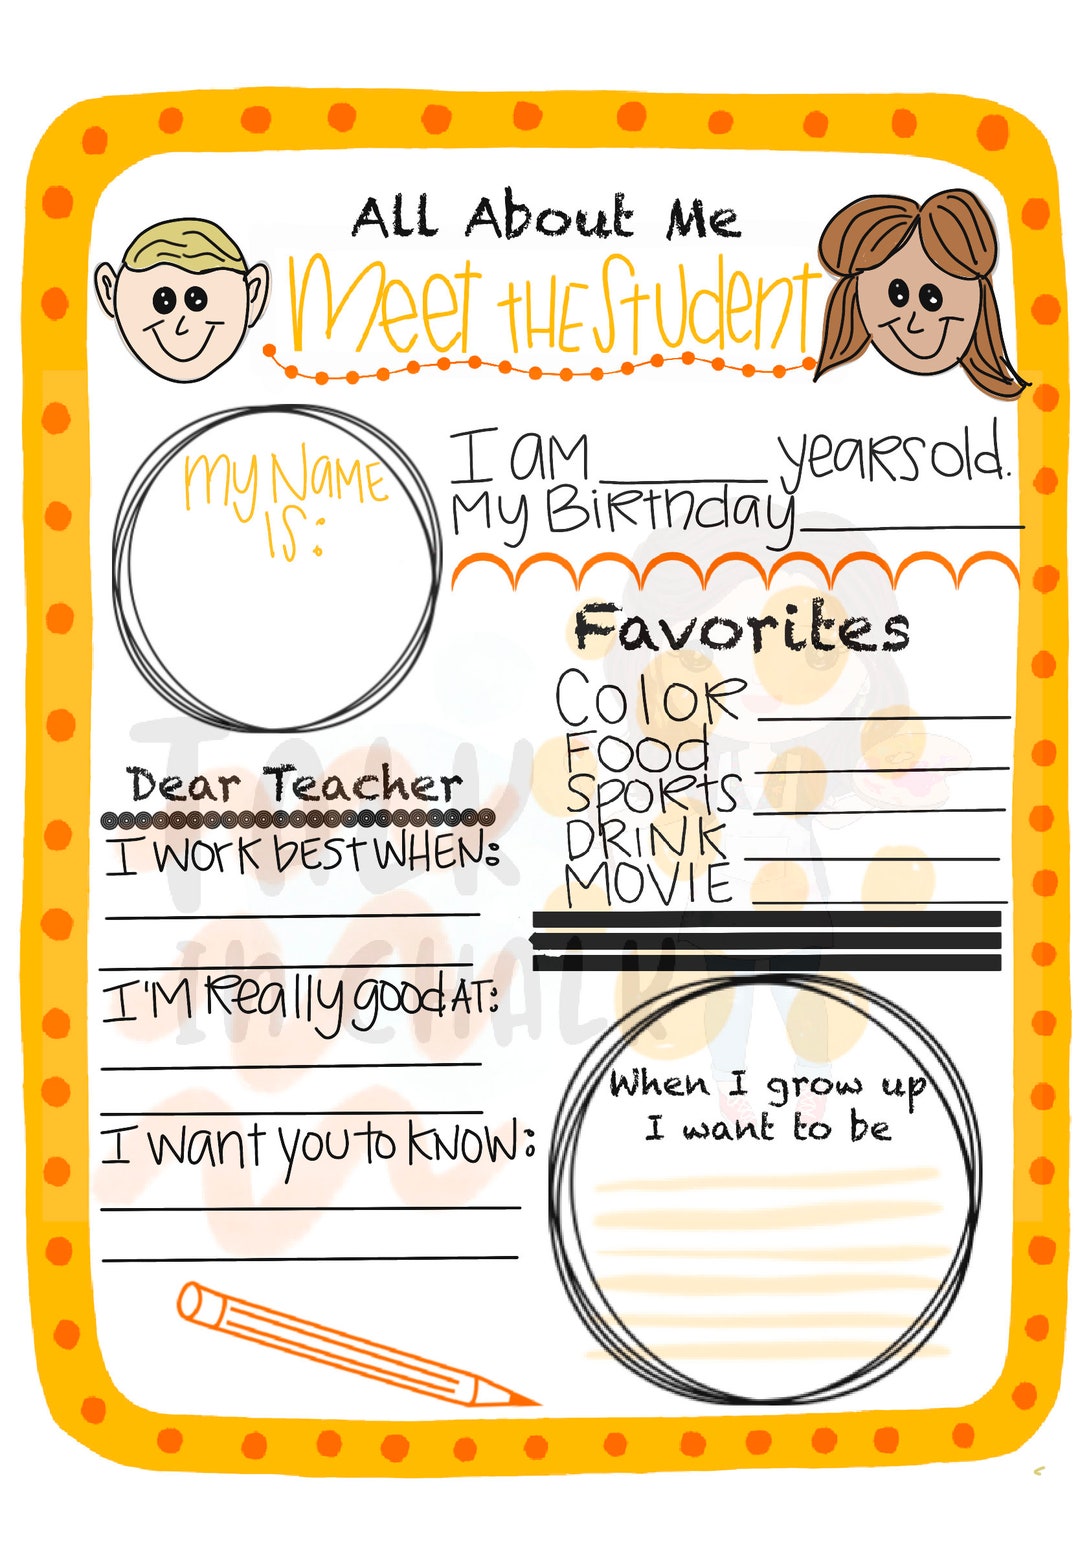 All About Me
Meet THE Student
My NAME
IS:
I AM ______ years old.
My Birthday________
Favorites
Color ________
Food ________
Sports ________
DRINK ________
MOVIE ________
Dear Teacher
I work best WHEN:
I'M Really good AT:
I want you to KNOW:
When I grow up
I want to be
TALK
IN CHALK